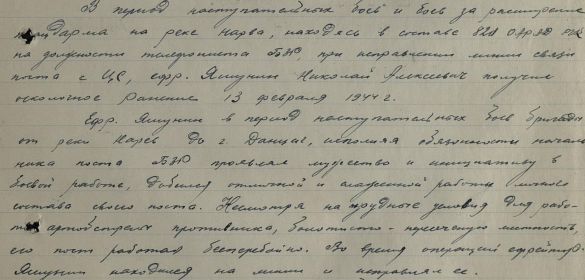 В период наступательных боев и боев за расширение
плацдарма на реке Нарва, находясь в составе 820 ОРАД РГК
на должности телефониста БЗР, при исправлении линии связи
поста с ЦС, ефр. Яшунин Николай Алексеевич получил
осколочное ранение 13 февраля 1944 г.
Ефр. Яшунин в период наступательных боев бригады
от реки Нарев до г. Данциг, исполняя обязанности началь
ника поста БЗР проявлял мужество и инициативу в
боевой работе, добился отличной и слаженной работы личного
состава своего поста. Несмотря на трудные условия для рабо-
ты артобстрел противника, болотисто-пересеченную местность,
его пост работал бесперебойно. Во время операций ефрейтор
Яшунин находился на линии и исправлял ее.